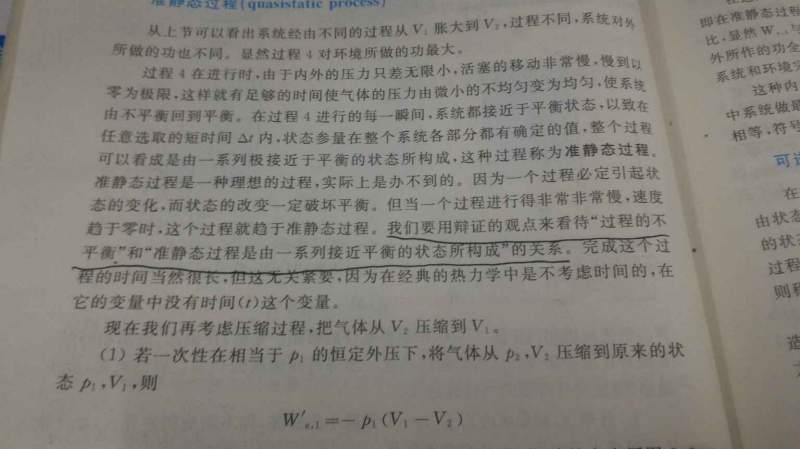 准静态过程(quasistatic process)
从上节可以看出系统经由不同的过程从 V₁ 胀大到 V₂,过程不同,系统对外
所做的功也不同。显然过程 4 对环境所做的功最大。
过程 4 在进行时,由于内外的压力只差无限小,活塞的移动非常慢,慢到以
零为极限,这样就有足够的时间使气体的压力由微小的不均匀变为均匀,使系统
由不平衡回到平衡。在过程 4 进行的每一瞬间,系统都接近于平衡状态,以致在
任意选取的短时间 Δt 内,状态参量在整个系统各部分都有确定的值,整个过程
可以看成是由一系列极接近于平衡的状态所构成,这种过程称为准静态过程。
准静态过程是一种理想的过程,实际上是办不到的。因为一个过程必定引起状
态的变化,而状态的改变一定破坏平衡。但当一个过程进行得非常非常慢,速度
趋于零时,这个过程就趋于准静态过程。我们要用辩证的观点来看待“过程的不
平衡”和“准静态过程是由一系列接近平衡的状态所构成”的关系。完成这个过
程的时间当然很长,但这无关紧要,因为在经典的热力学中是不考虑时间的,在
它的变量中没有时间(t)这个变量。
现在我们再考虑压缩过程,把气体从 V₂ 压缩到 V₁。
(1) 若一次性在相当于 p₁ 的恒定外压下,将气体从 p₂,V₂ 压缩到原来的状
态 p₁,V₁,则
W′ₑ,₁=−p₁(V₁−V₂)
即在准静态过程
比,显然 W
外所作的功全
系统和环境完
这种内
中系统做最
相等,符号
可逆
在
由状态
的状
过程
则
造